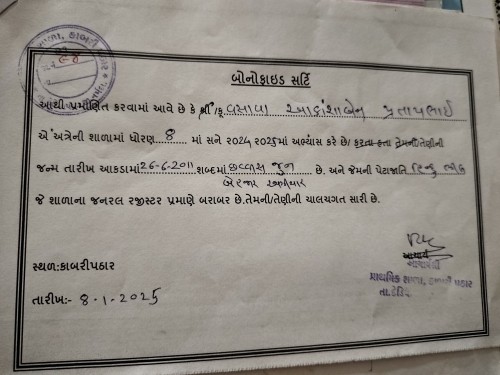 બોનોફાઇડ સર્ટિ
આથી પ્રમાણિત કરવામાં આવે છે કે શ્રી/કુ વસાવા આકાંક્ષાબેન પ્રતાપભાઈ
એ અત્રેની શાળામાં ધોરણ 8 માં સને ૨૦૨૪ ૨૦૨૫માં અભ્યાસ કરે છે/ કરતા હતા તેમની/તેણીની
જન્મ તારીખ આકડામાં 26-6-2011 શબ્દમાં છવ્વીસ જુન
બેહજાર અગીયાર
છે. અને જેમની પેટાજાતિ હિન્દુ ભીલ
જે શાળાના જનરલ રજીસ્ટર પ્રમાણે બરાબર છે.તેમની/તેણીની ચાલચગત સારી છે.
આચાર્ય
સ્થળ:કાબરીપઠાર
પ્રાથમિક શાળા, કાબરી પઠાર
તારીખ:- 8-1-2025